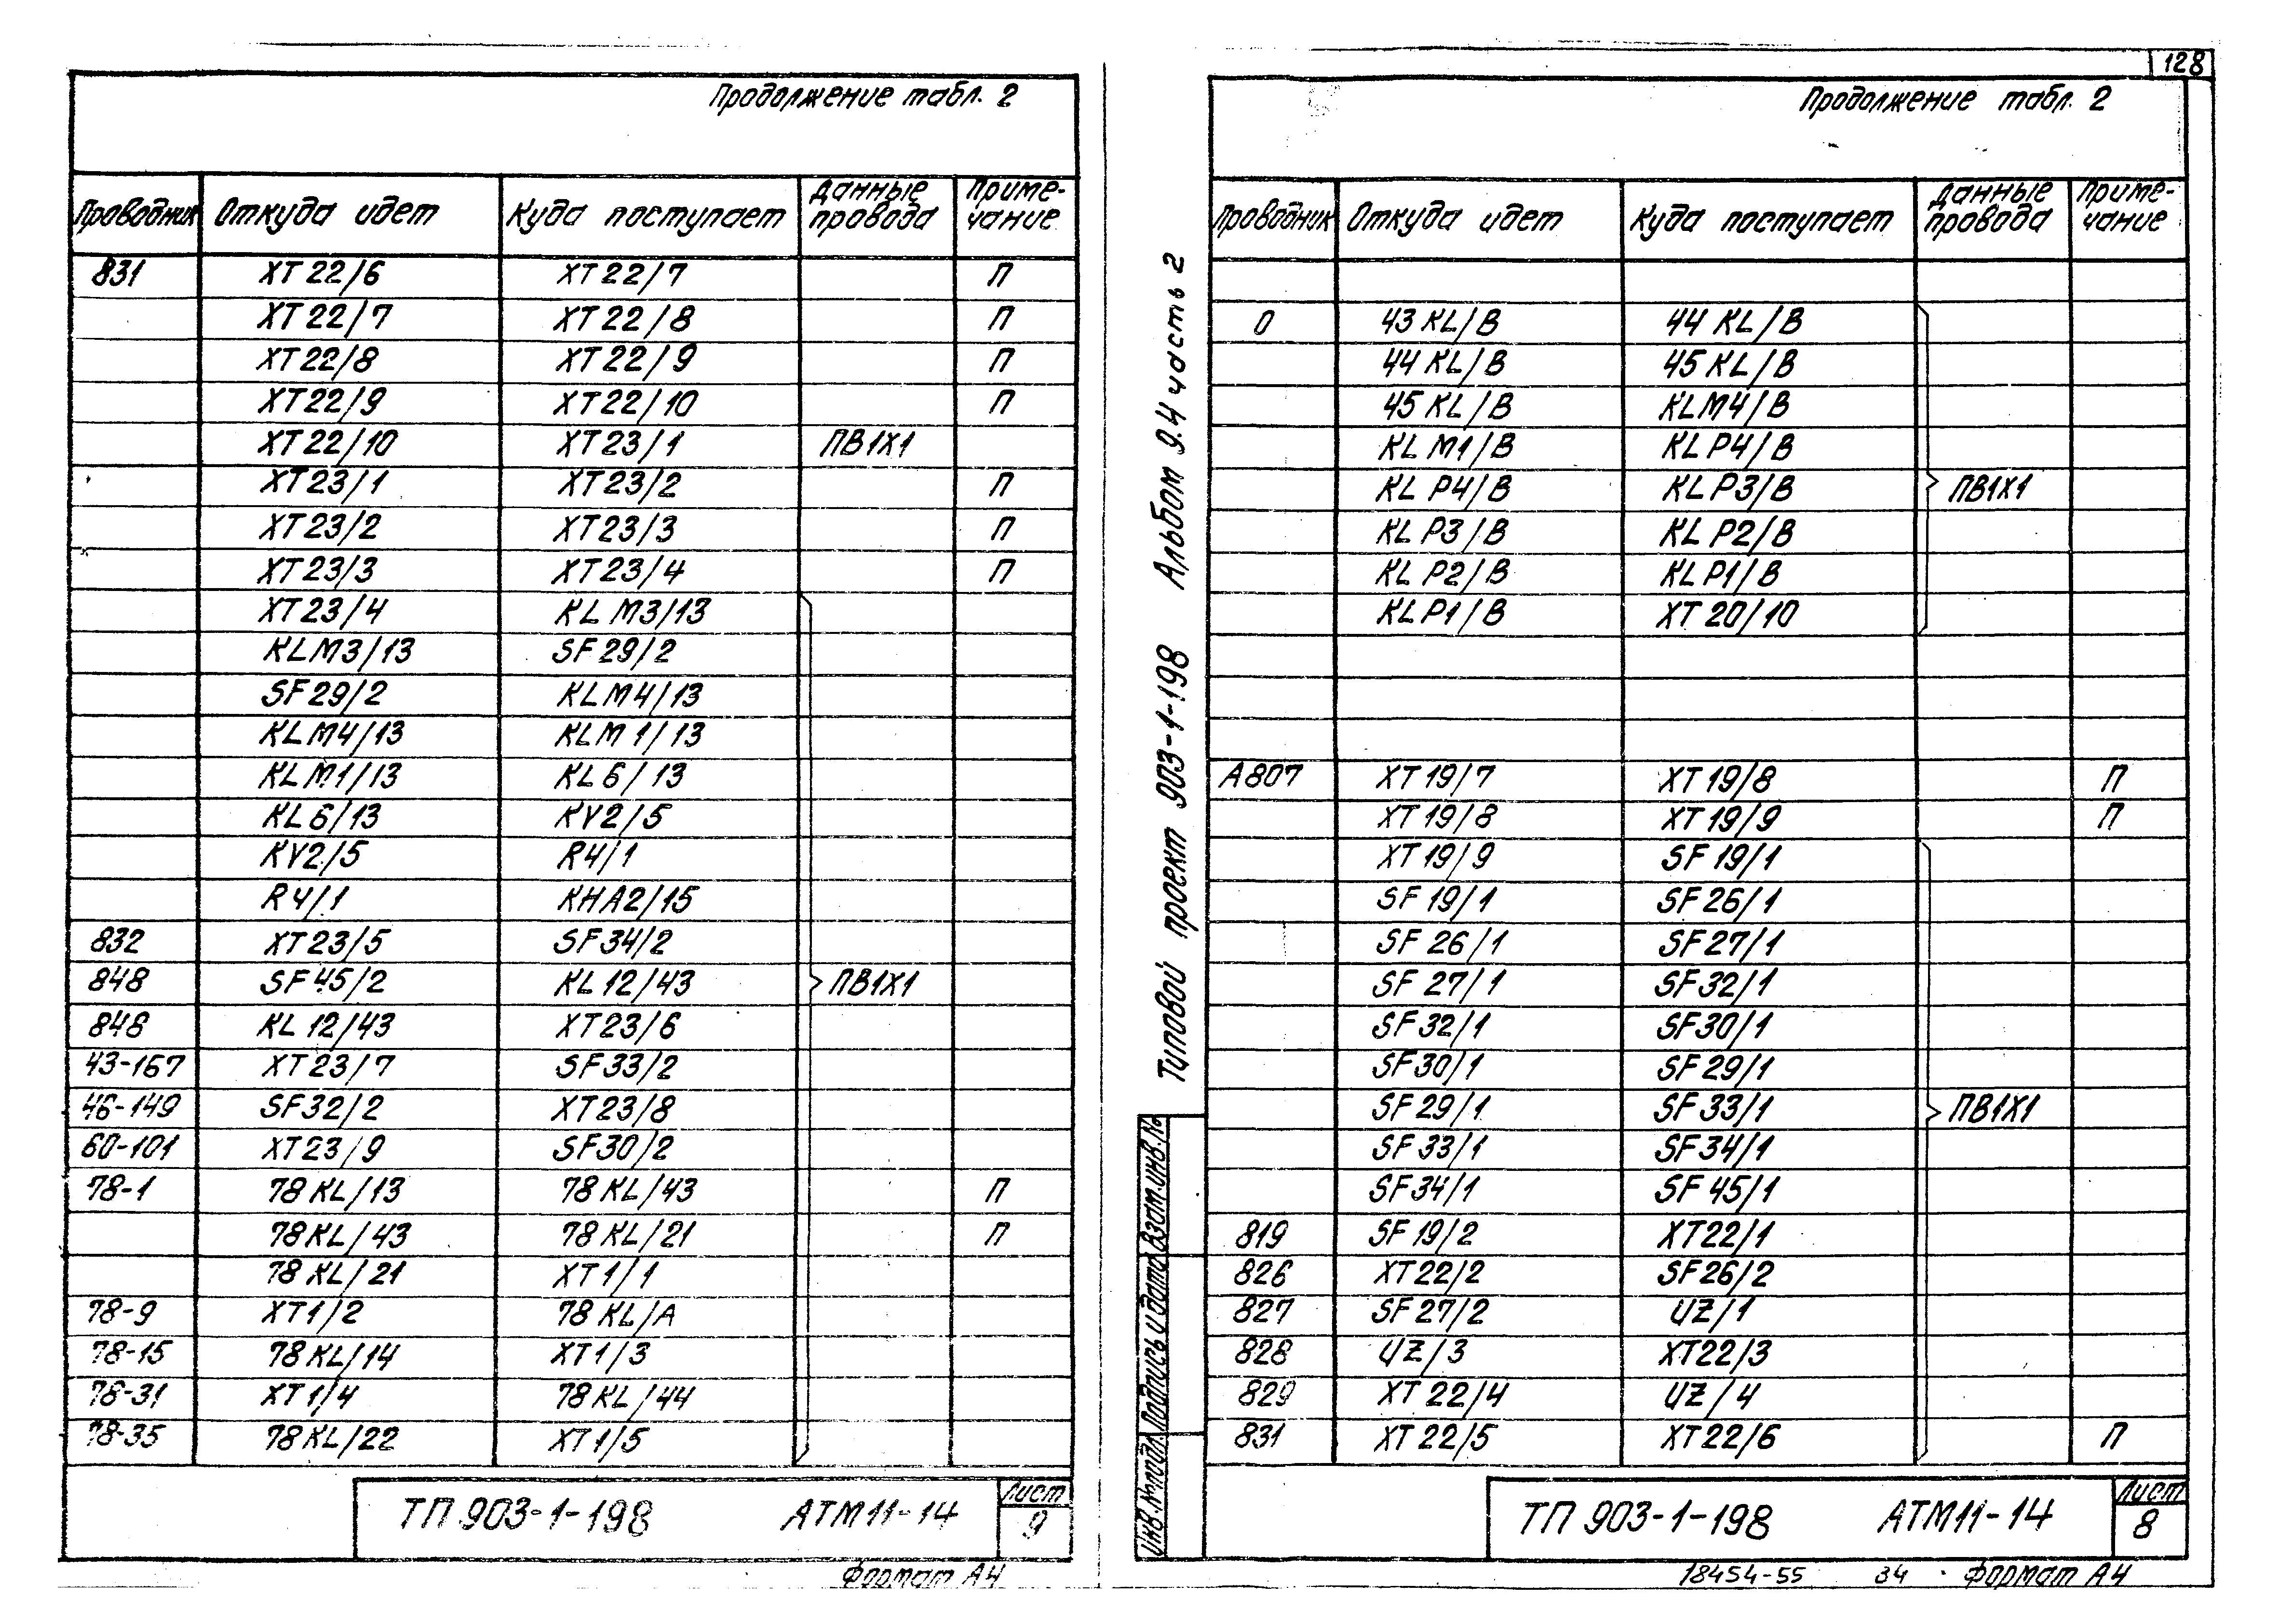 Продолжение табл. 2
Проводник Откуда идет Куда поступает Данные провода Приме-чание
831 XT22/6 XT22/7 П
XT22/7 XT22/8 П
XT22/8 XT22/9 П
XT22/9 XT22/10 П
XT22/10 XT23/1 ПВ1X1
XT23/1 XT23/2 П
XT23/2 XT23/3 П
XT23/3 XT23/4 П
XT23/4 KLM3/13
KLM3/13 SF29/2
SF29/2 KLM4/13
KLM4/13 KLM1/13
KLM1/13 KL6/13
KL6/13 KV2/5
KV2/5 R4/1
R4/1 KHA2/15
832 XT23/5 SF34/2
848 SF45/2 KL12/43 ПВ1X1
848 KL12/43 XT23/6
43-167 XT23/7 SF33/2
46-149 SF32/2 XT23/8
60-101 XT23/9 SF30/2
78-1 78KL/13 78KL/43 П
78KL/43 78KL/21 П
78KL/21 XT1/1
78-9 XT1/2 78KL/A
78-15 78KL/14 XT1/3
78-31 XT1/4 78KL/44
78-35 78KL/22 XT1/5
ТП 903-1-198 АТМ11-14 Лист 9
Формат А4
128
Продолжение табл. 2
Проводник Откуда идет Куда поступает Данные провода Приме-чание
0 43KL/B 44KL/B
44KL/B 45KL/B
45KL/B KLM4/B
KLM1/B KLP4/B
KLP4/B KLP3/B ПВ1X1
KLP3/B KLP2/B
KLP2/B KLP1/B
KLP1/B XT20/10
A807 XT19/7 XT19/8 П
XT19/8 XT19/9 П
XT19/9 SF19/1
SF19/1 SF26/1
SF26/1 SF27/1
SF27/1 SF32/1
SF32/1 SF30/1
SF30/1 SF29/1
SF29/1 SF33/1 ПВ1X1
SF33/1 SF34/1
SF34/1 SF45/1
819 SF19/2 XT22/1
826 XT22/2 SF26/2
827 SF27/2 UZ/1
828 UZ/3 XT22/3
829 XT22/4 UZ/4
831 XT22/5 XT22/6 П
ТП 903-1-198 АТМ11-14 Лист 8
18454-55 34 Формат А4
Типовой проект 903-1-198 Альбом 9.4 часть 2
Инв.№подл. Подпись и дата Взам.инв.№